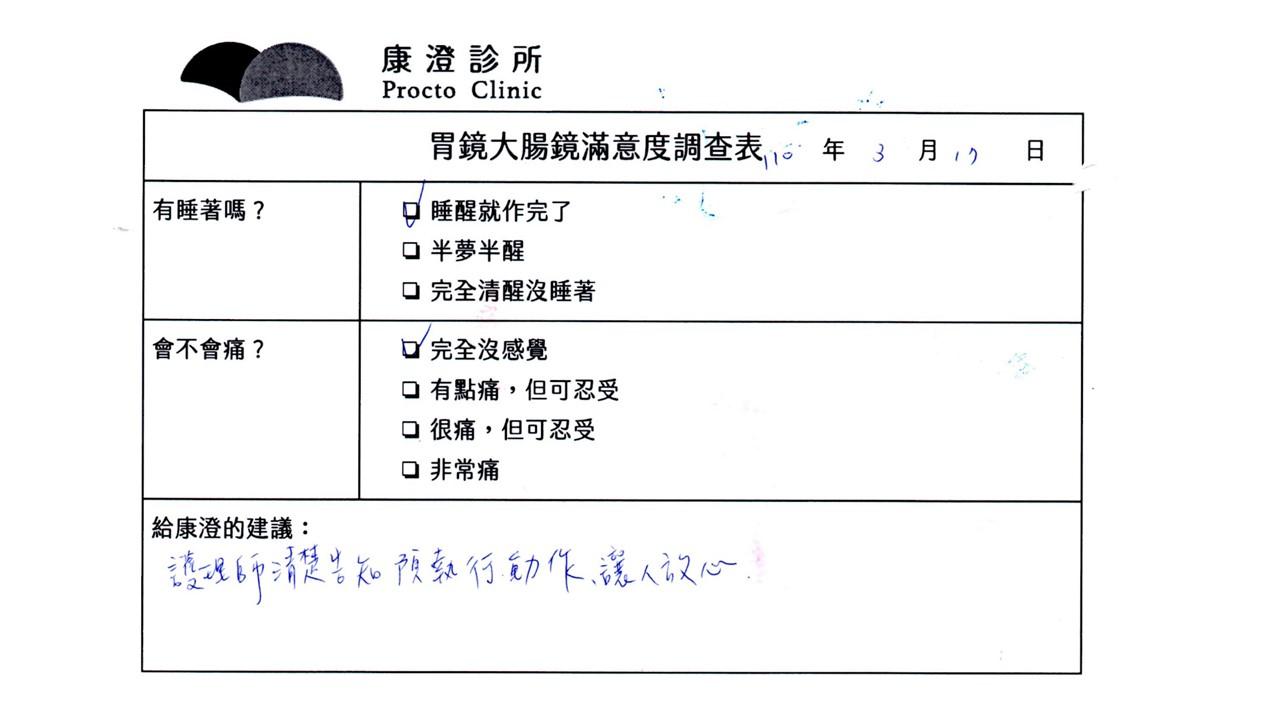 康澄診所
Procto Clinic
胃鏡大腸鏡滿意度調查表 110 年 3 月 17 日
有睡著嗎？
睡醒就作完了
半夢半醒
完全清醒沒睡著
會不會痛？
完全沒感覺
有點痛，但可忍受
很痛，但可忍受
非常痛
給康澄的建議：
護理師清楚告知預執行動作、讓人放心.